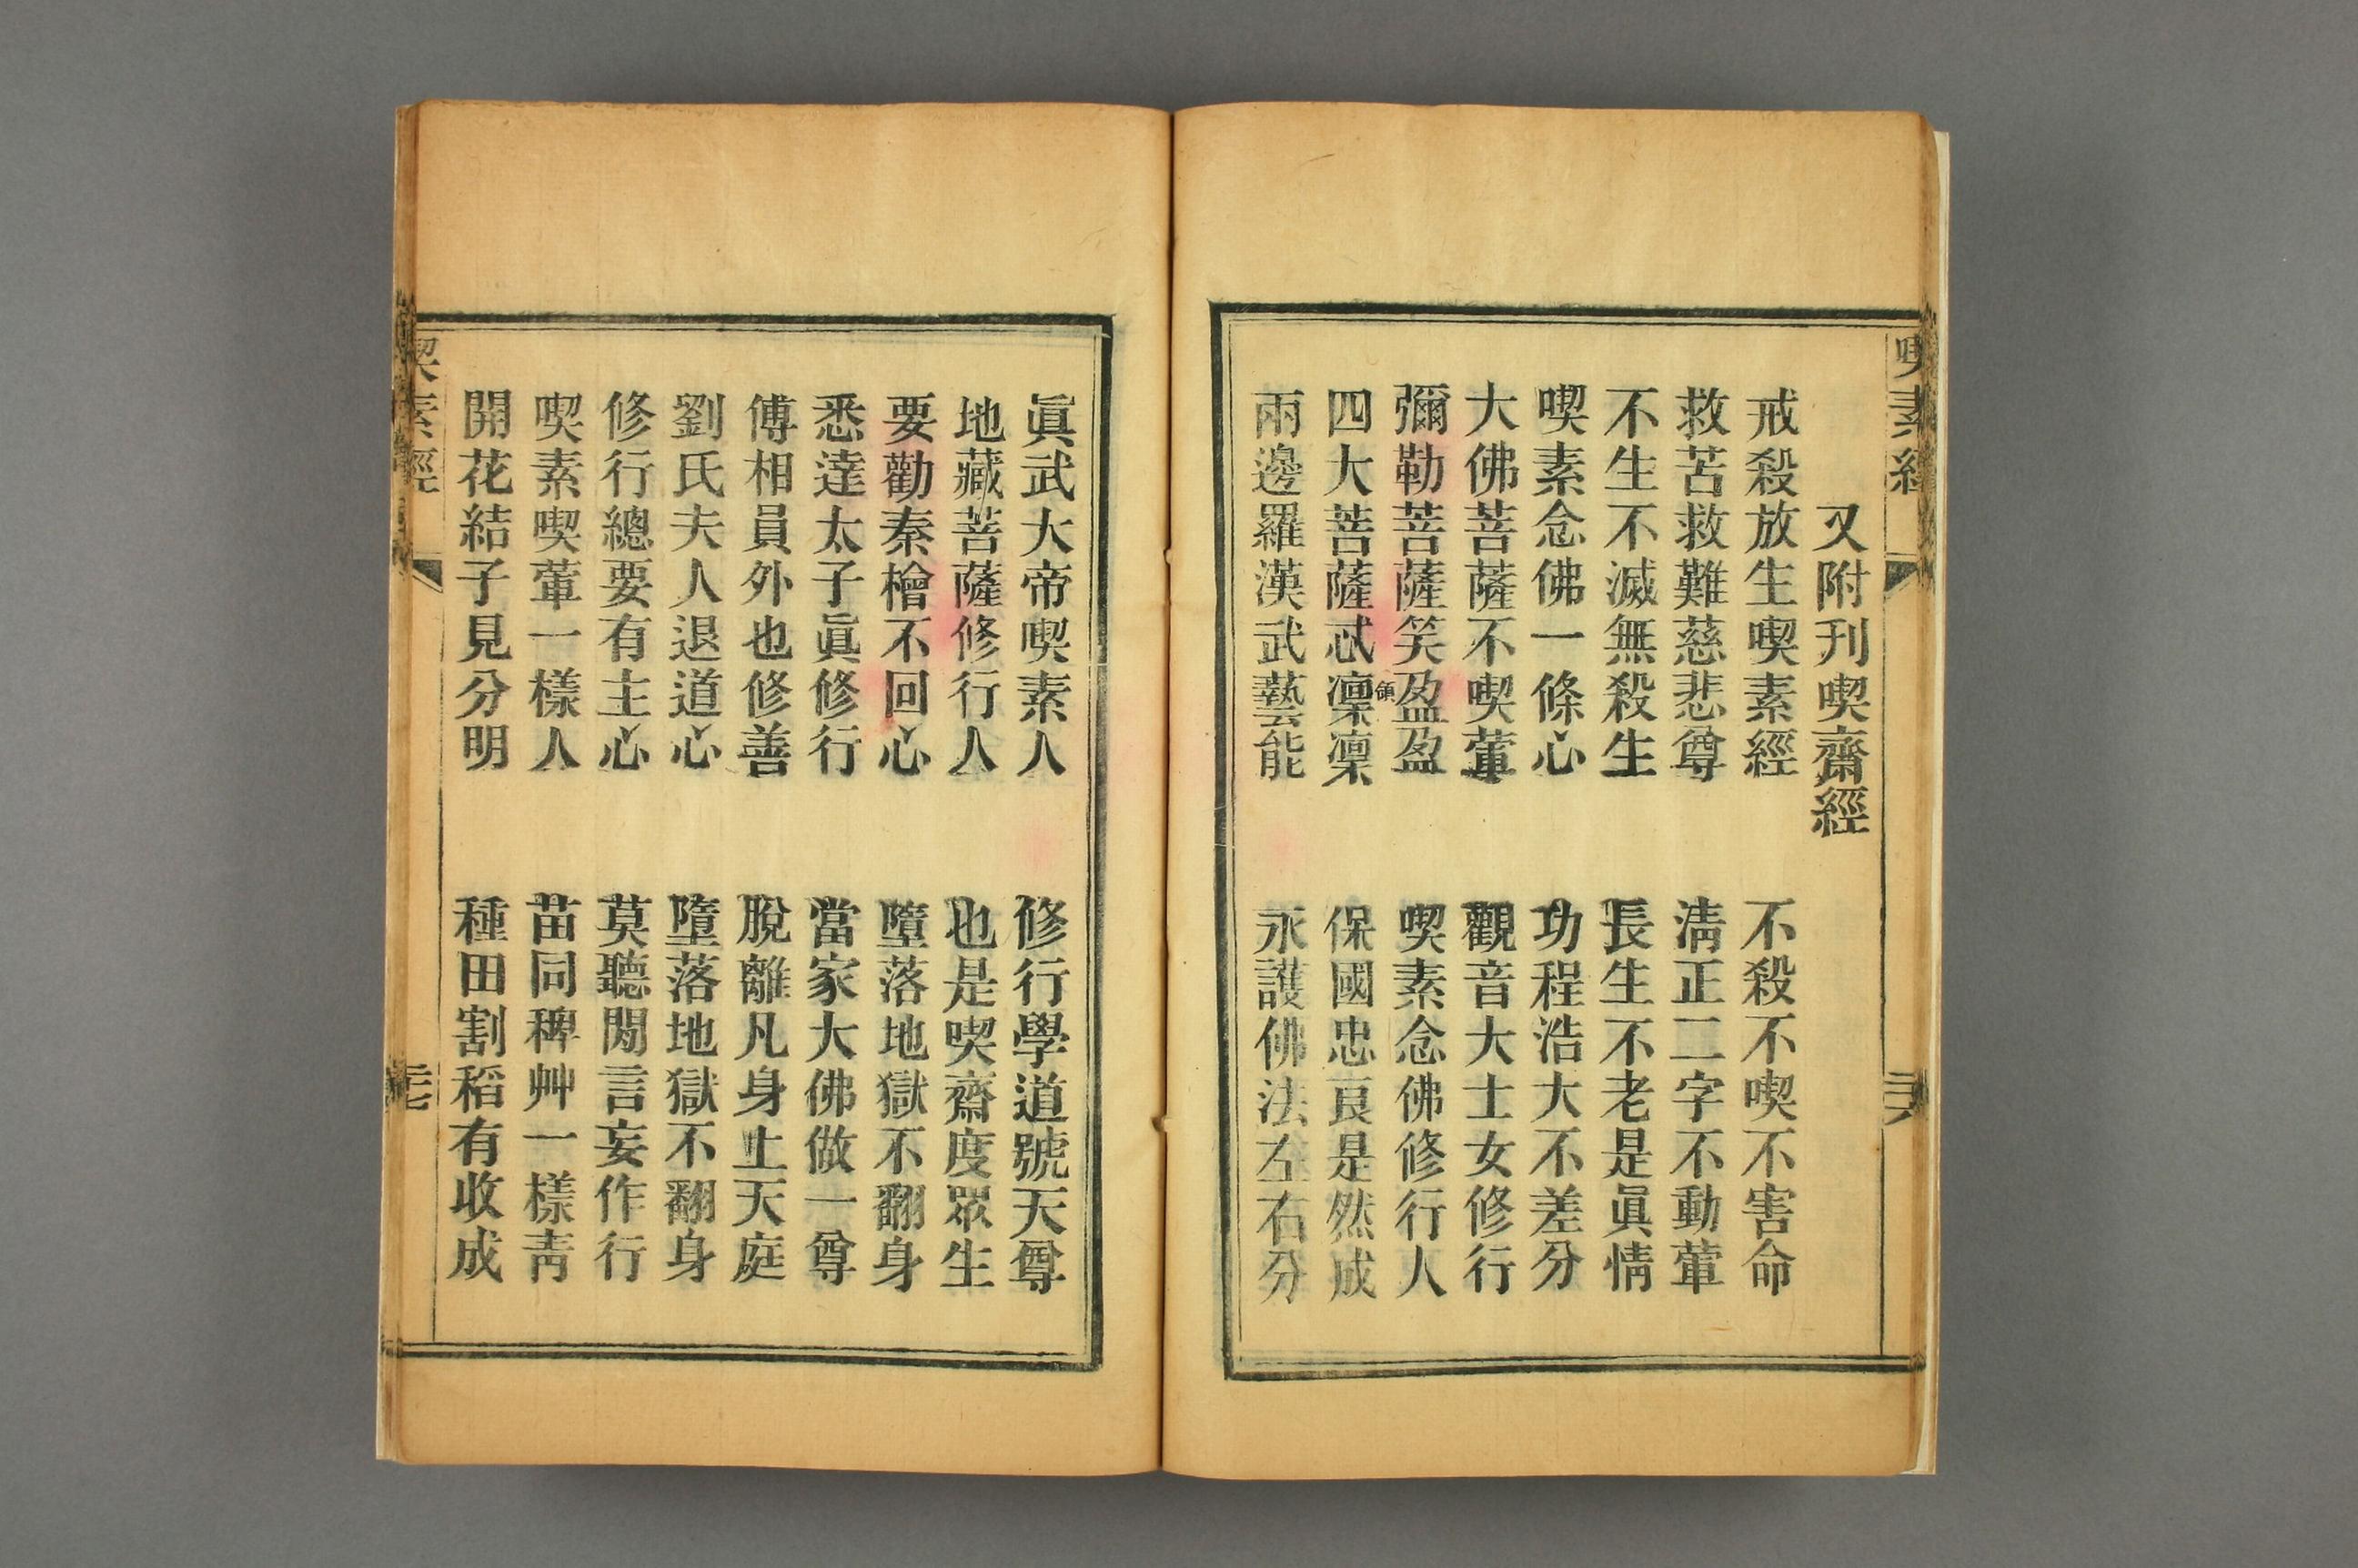 喫素經
二六
又附刊喫齋經
戒殺放生喫素經　不殺不喫不害命
救苦救難慈悲尊　淸正二字不動葷
不生不滅無殺生　長生不老是眞情
喫素念佛一條心　功程浩大不差分
大佛菩薩不喫葷　觀音大士女修行
彌勒菩薩笑盈盈　喫素念佛修行人
四大菩薩忒凜凜　保國忠良是然成
兩邊羅漢武藝能　永護佛法左右分
眞武大帝喫素人　修行學道號天尊
地藏菩薩修行人　也是喫齋度眾生
要勸秦檜不回心　墮落地獄不翻身
悉達太子眞修行　當家大佛做一尊
傅相員外也修善　脫離凡身上天庭
劉氏夫人退道心　墮落地獄不翻身
修行總要有主心　莫聽閒言妄作行
喫素喫葷一樣人　苗同稗艸一樣靑
開花結子見分明　種田割稻有收成
喫素經
二七